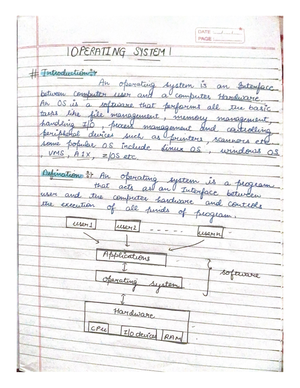 DATE
PAGE
|OPERATING SYSTEM|
# Introduction:-
An operating system is an Interface
between computer user and a computer Hardware.
An OS is a software that performs all the basic
tasks like file management, memory management,
handling I/O, process management and controlling
peripheral devices such as printers, scanners etc
some popular OS include Linux OS, windows OS
VMS, AIX, z/OS etc.
Defination:- An operating system is a program
that acts as an Interface between
user and the computer hardware and controls
the execution of all kinds of program.
user1 user2 ---- usern
Applications
Operating system
software
Hardware
CPU I/O devices RAM